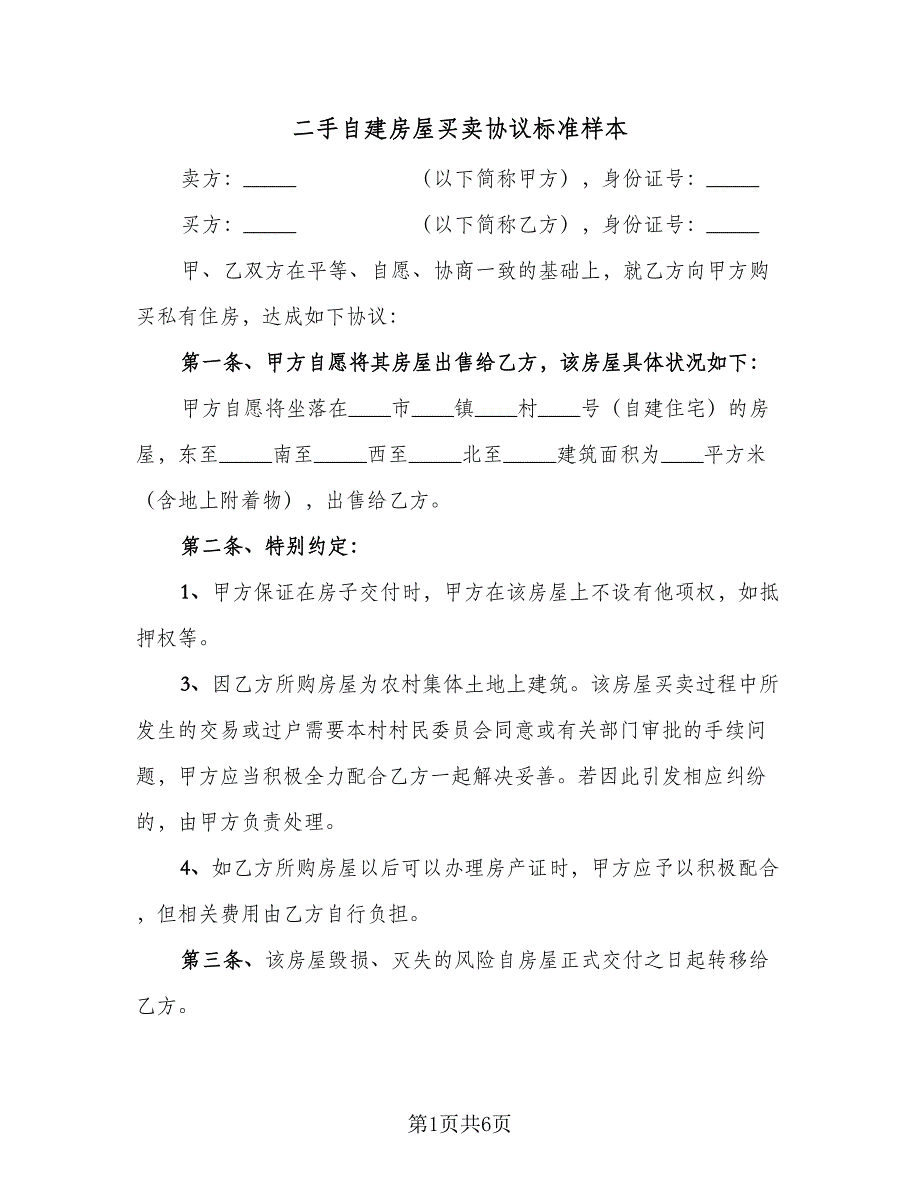 二手自建房屋买卖协议标准样本
卖方：_____ （以下简称甲方），身份证号：_____
买方：_____ （以下简称乙方），身份证号：_____
甲、乙双方在平等、自愿、协商一致的基础上，就乙方向甲方购
买私有住房，达成如下协议：
第一条、甲方自愿将其房屋出售给乙方，该房屋具体状况如下：
甲方自愿将坐落在____市____镇____村____号（自建住宅）的房
屋，东至_____南至_____西至_____北至_____建筑面积为____平方米
（含地上附着物），出售给乙方。
第二条、特别约定：
1、甲方保证在房子交付时，甲方在该房屋上不设有他项权，如抵
押权等。
3、因乙方所购房屋为农村集体土地上建筑。该房屋买卖过程中所
发生的交易或过户需要本村村民委员会同意或有关部门审批的手续问
题，甲方应当积极全力配合乙方一起解决妥善。若因此引发相应纠纷
的，由甲方负责处理。
4、如乙方所购房屋以后可以办理房产证时，甲方应予以积极配合
，但相关费用由乙方自行负担。
第三条、该房屋毁损、灭失的风险自房屋正式交付之日起转移给
乙方。
第1页共6页